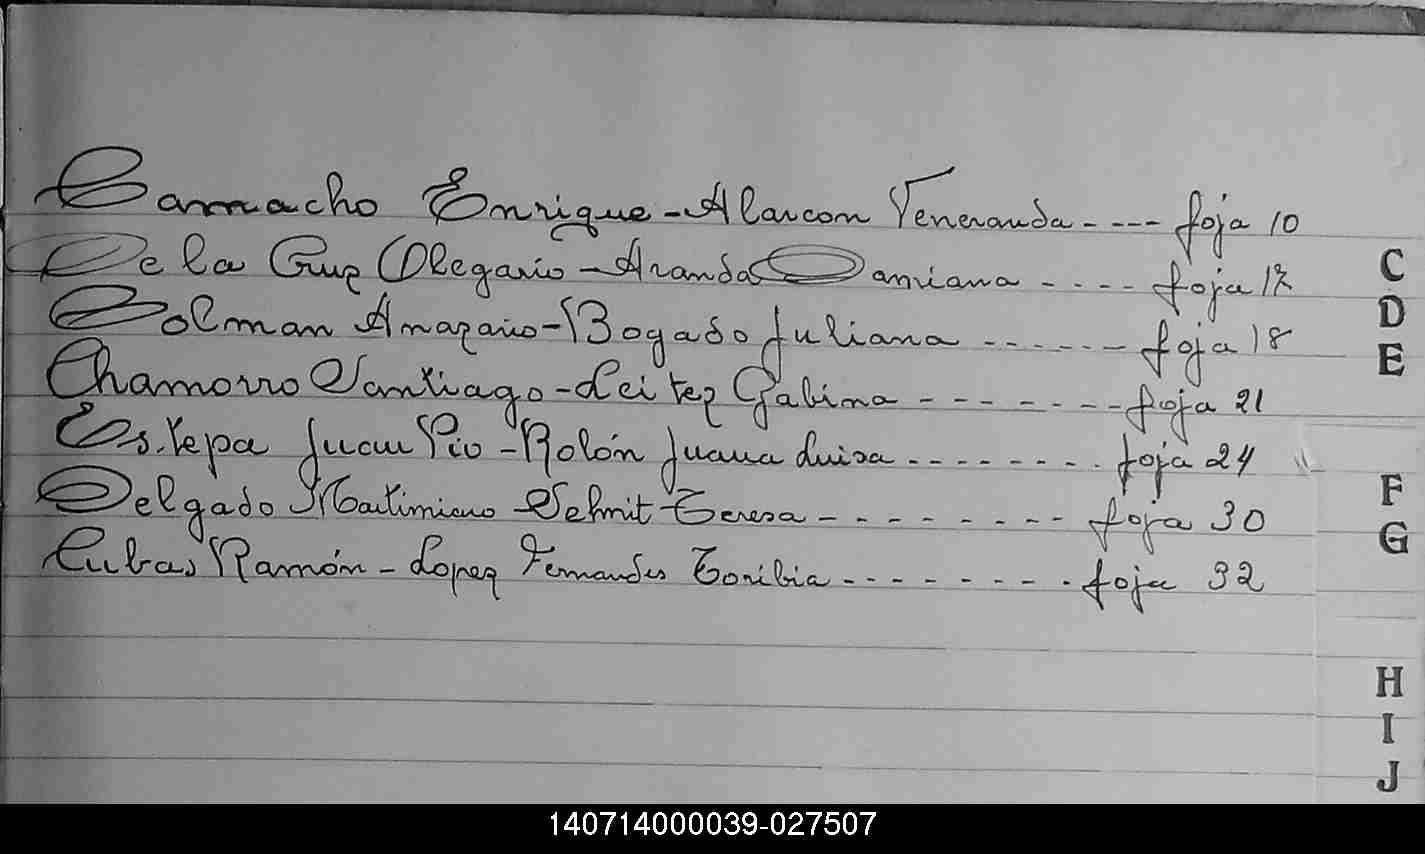 Camacho Enrique - Alarcon Veneranda - - - - foja 10
De la Cruz Olegario - Aranda Damiana - - - - foja 17
Dolman Amazario - Bogado Juliana - - - - - - foja 18
Chamorro Santiago - Leitez Gabina - - - - - - - foja 21
Estepa Juan Pio - Rolón Juana Luisa - - - - - - - - foja 24
Delgado Maximiano Schmit Teresa - - - - - - - - foja 30
Cubas Ramón - Lopez Fernandes Toribia - - - - - - - - foja 32
C
D
E
F
G
H
I
J
140714000039-027507